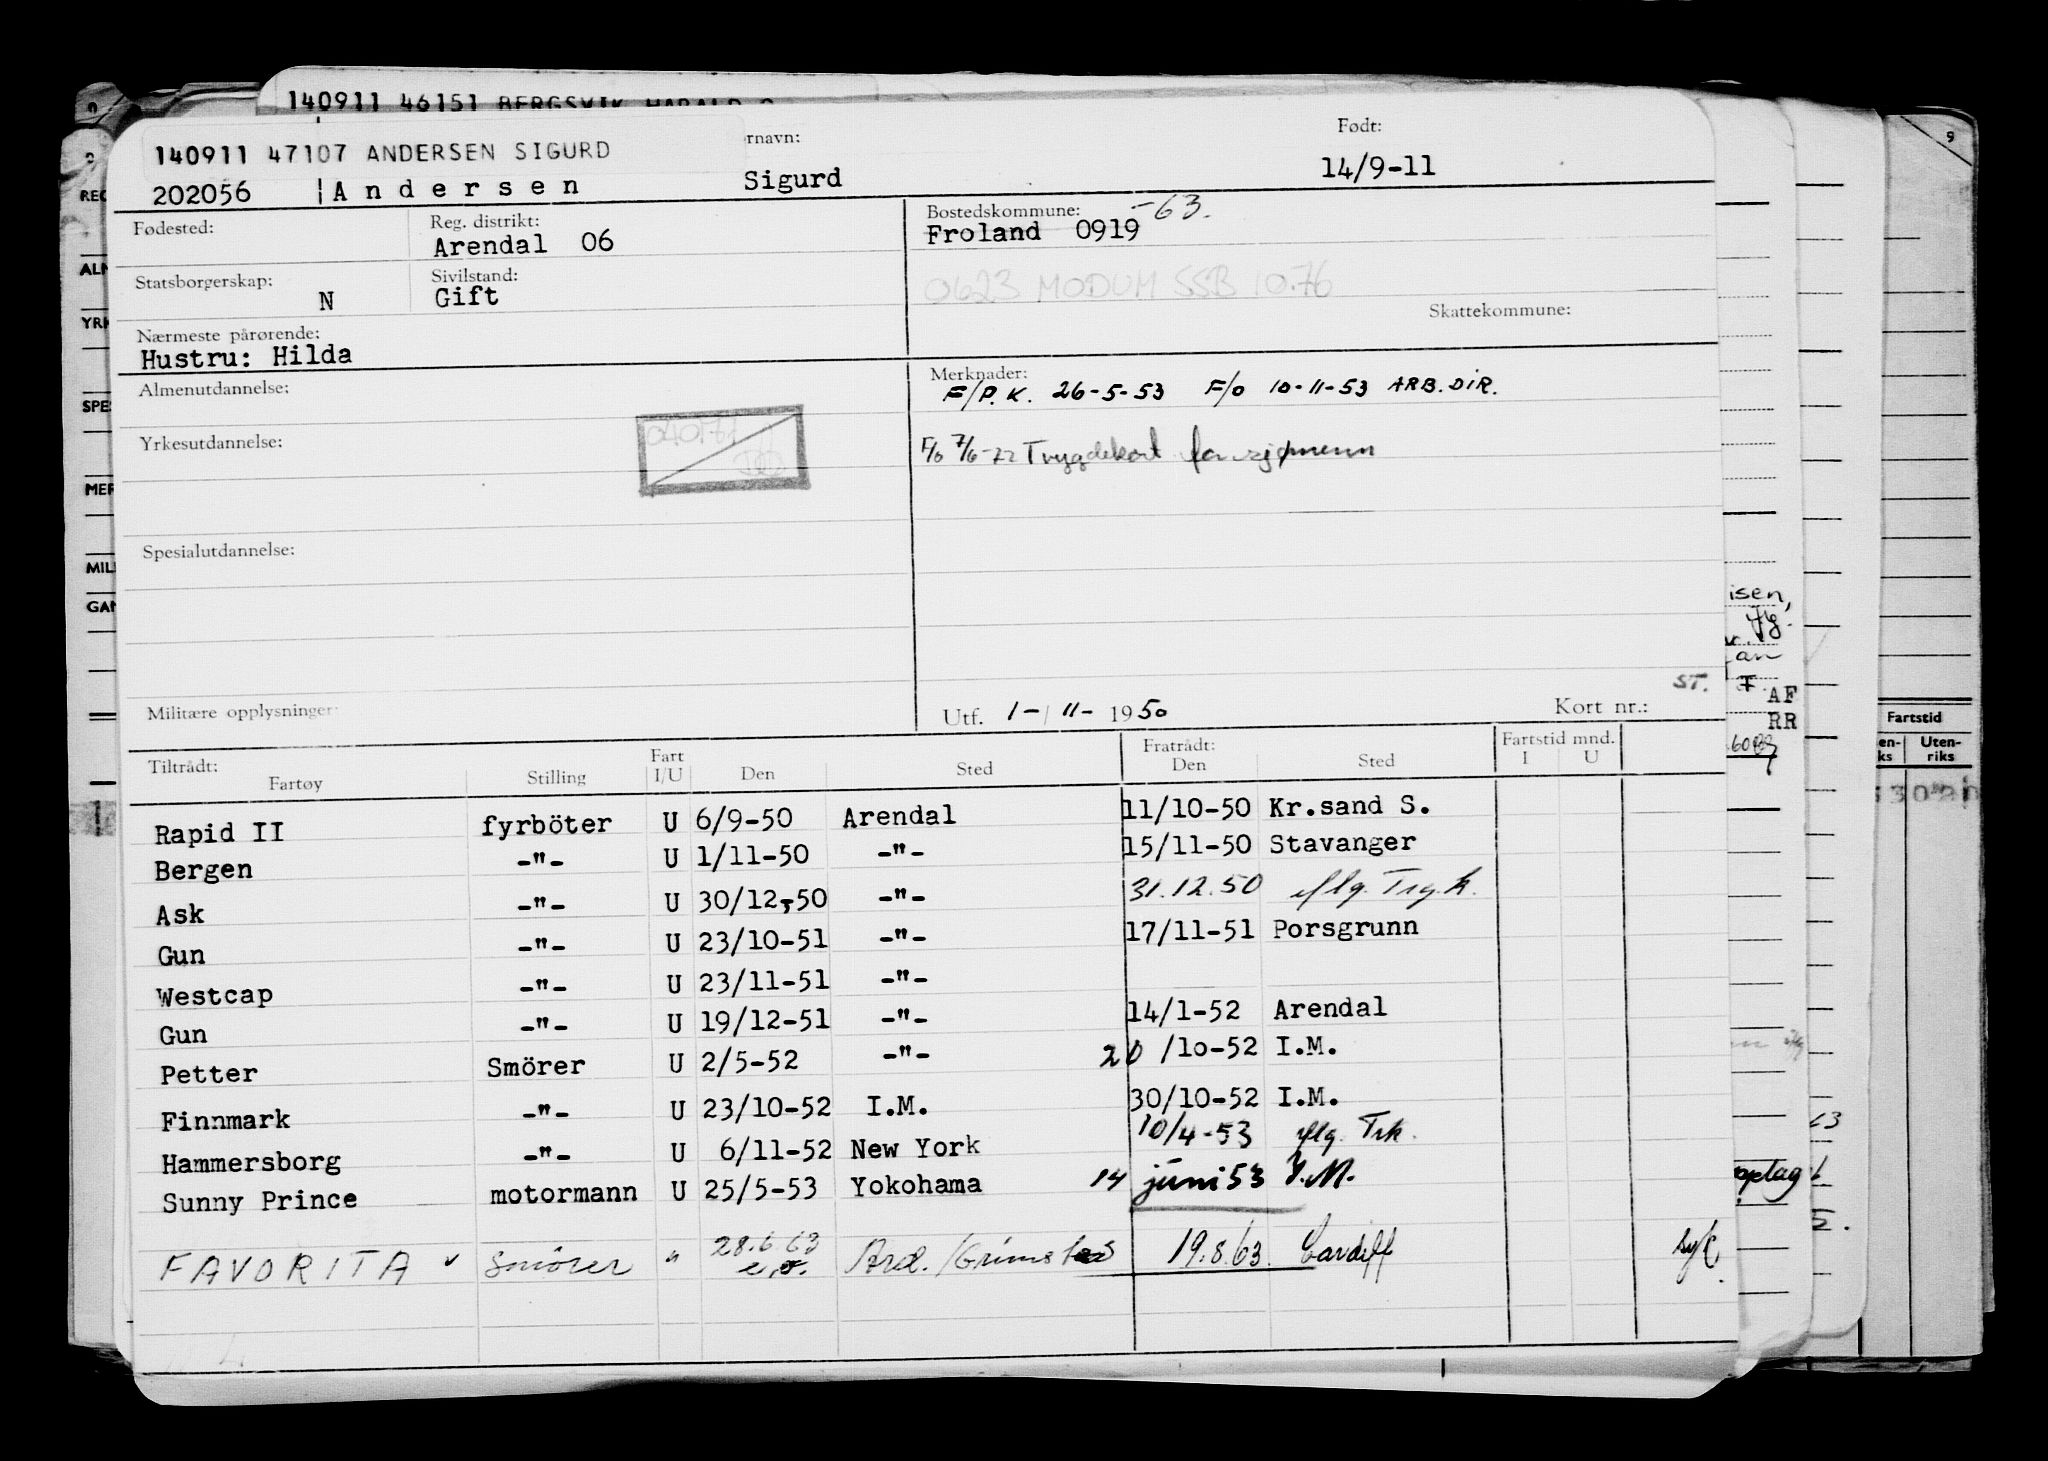 140911 46151 BERGSVIK HARALD
140911 47107 ANDERSEN SIGURD
rnavn:
Født:
202056 Andersen Sigurd 14/9-11
Fødested:
Reg. distrikt:
Arendal 06
Bostedskommune: -63.
Froland 0919
Statsborgerskap:
N
Sivilstand:
Gift
0623 MODUM SSB 10.76
Skattekommune:
Nærmeste pårørende:
Hustru: Hilda
Almenutdannelse:
Merknader:
F/P.K. 26-5-53 F/O 10-11-53 ARB.DIR.
Yrkesutdannelse:
F/O 7/6-72 Trygdekort for sjømenn
Spesialutdannelse:
ST.
Militære opplysninger:
Utf. 1-/11-1950
Kort nr.:
Tiltrådt:
Fartøy Stilling Fart I/U Den Sted
Fratrådt:
Den Sted
Fartstid mnd.
I U
Rapid II fyrböter U 6/9-50 Arendal 11/10-50 Kr.sand S.
Bergen -"- U 1/11-50 -"- 15/11-50 Stavanger
Ask -"- U 30/12-50 -"- 31.12.50 iflg. Trg.k.
Gun -"- U 23/10-51 -"- 17/11-51 Porsgrunn
Westcap -"- U 23/11-51 -"-
Gun -"- U 19/12-51 -"- 14/1-52 Arendal
Petter Smörer U 2/5-52 -"- 20/10-52 I.M.
Finnmark -"- U 23/10-52 I.M. 30/10-52 I.M.
Hammersborg -"- U 6/11-52 New York 10/4-53 iflg. Trk.
Sunny Prince motormann U 25/5-53 Yokohama 14 juni 53 I.M.
FAVORITA Smörer " 28.6.63 e.o. Ard./Grimstad 19.8.63. Cardiff syk
REG
ALM
YRK
SPES
MER
MILI
GAN
isen,
AF
RR
Fartstid
en-
ks
Uten-
riks
9